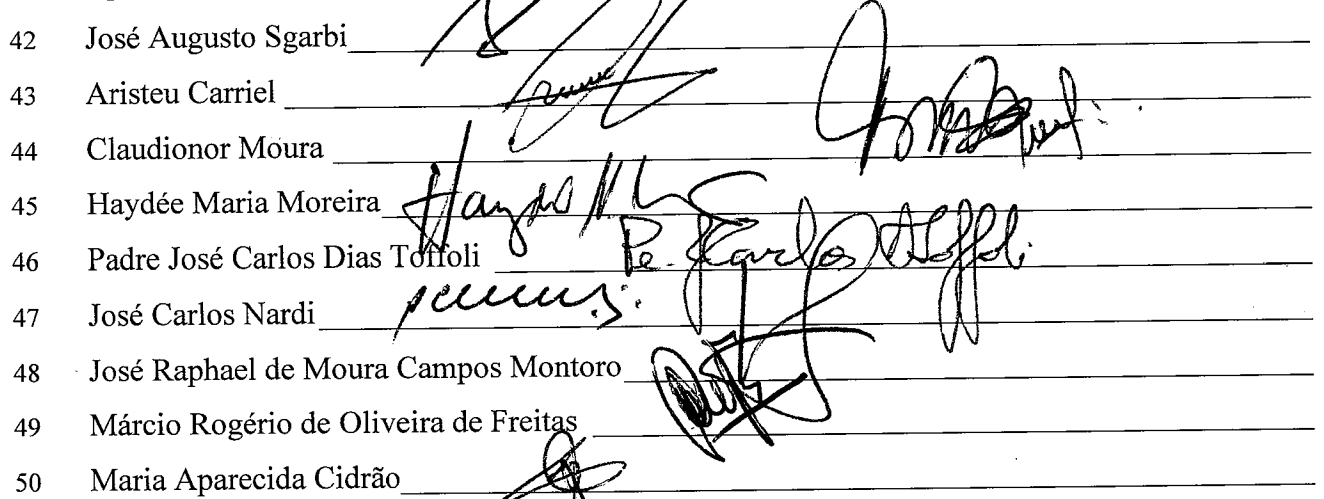 42 José Augusto Sgarbi
43 Aristeu Carriel
44 Claudionor Moura
45 Haydée Maria Moreira Haydée
46 Padre José Carlos Dias Toffoli Pe. J Carlos D Toffoli
47 José Carlos Nardi
48 José Raphael de Moura Campos Montoro
49 Márcio Rogério de Oliveira de Freitas
50 Maria Aparecida Cidrão